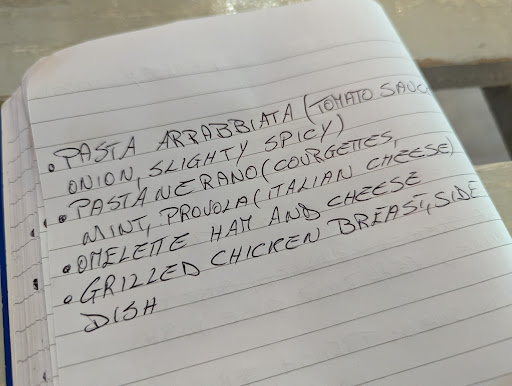 • PASTA ARRABBIATA (TOMATO SAUC
ONION, SLIGHTY SPICY)
• PASTA NERANO (COURGETTES,
MINT, PROVOLA (ITALIAN CHEESE)
• OMELETTE HAM AND CHEESE
• GRILLED CHICKEN BREAST, SIDE
DISH